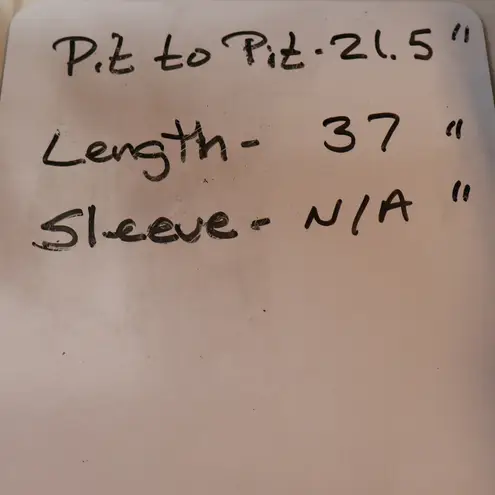 Pit to Pit - 21.5"
Length - 37 "
Sleeve - N/A "